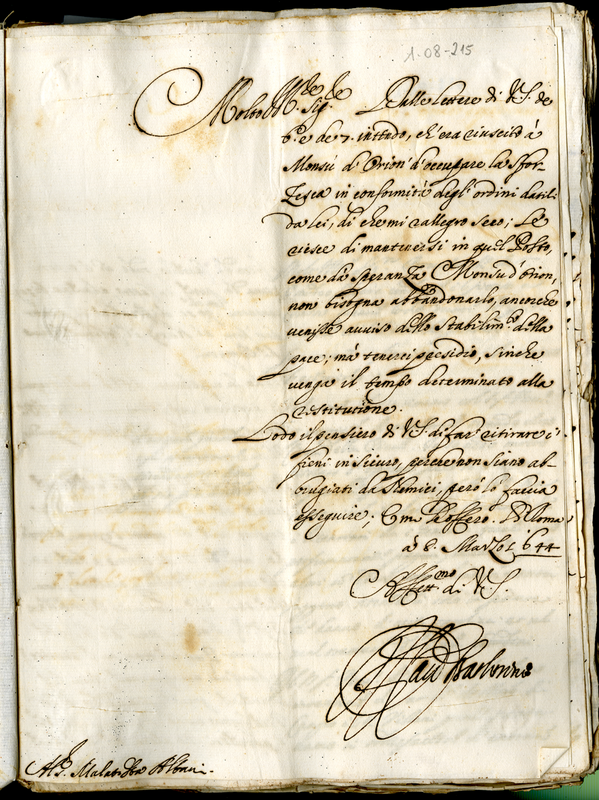 1-08-215
Molto Ill.re Sig.re Dalle lettere di V.S. de
6. e de 7. inttado, ch'era riuscito à
Monsù d'Orion d'occupare la Sfor-
zesca in conformità degl'ordini datili
da lei, di che mi rallegro seco; Se
riesce di mantenersi in quel Posto,
come dà speranza Monsù d'Orion,
non bisogna abbandonarlo, ancorche
venisse avviso dello stabilim.to della
pace; mà tenerci presidio, sinche
venga il tempo determinato alla
restitutione.
Lodo il pensiero di V.S. di far ritirare i
fieni in sicuro, perche non siano ab-
brugiati da Nemici, però lo faccia
esseguire; E m'offero. Di Roma
à 8. Marzo 1644
Affett.mo di V.S.
Barberino
Al S. Malatesta Albani.